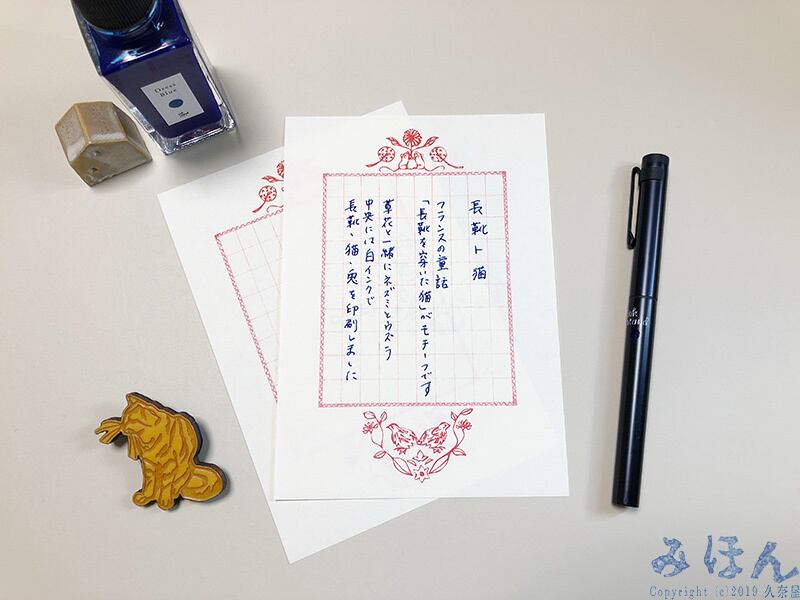 長靴ト猫
フランスの童話
「長靴を穿いた猫」がモチーフです
草花と一緒にネズミとウズラ
中央には白インクで
長靴・猫・兎を印刷しました
Dress
Blue
ink
stand
みほん
Copyright (c)2019 久奈屋